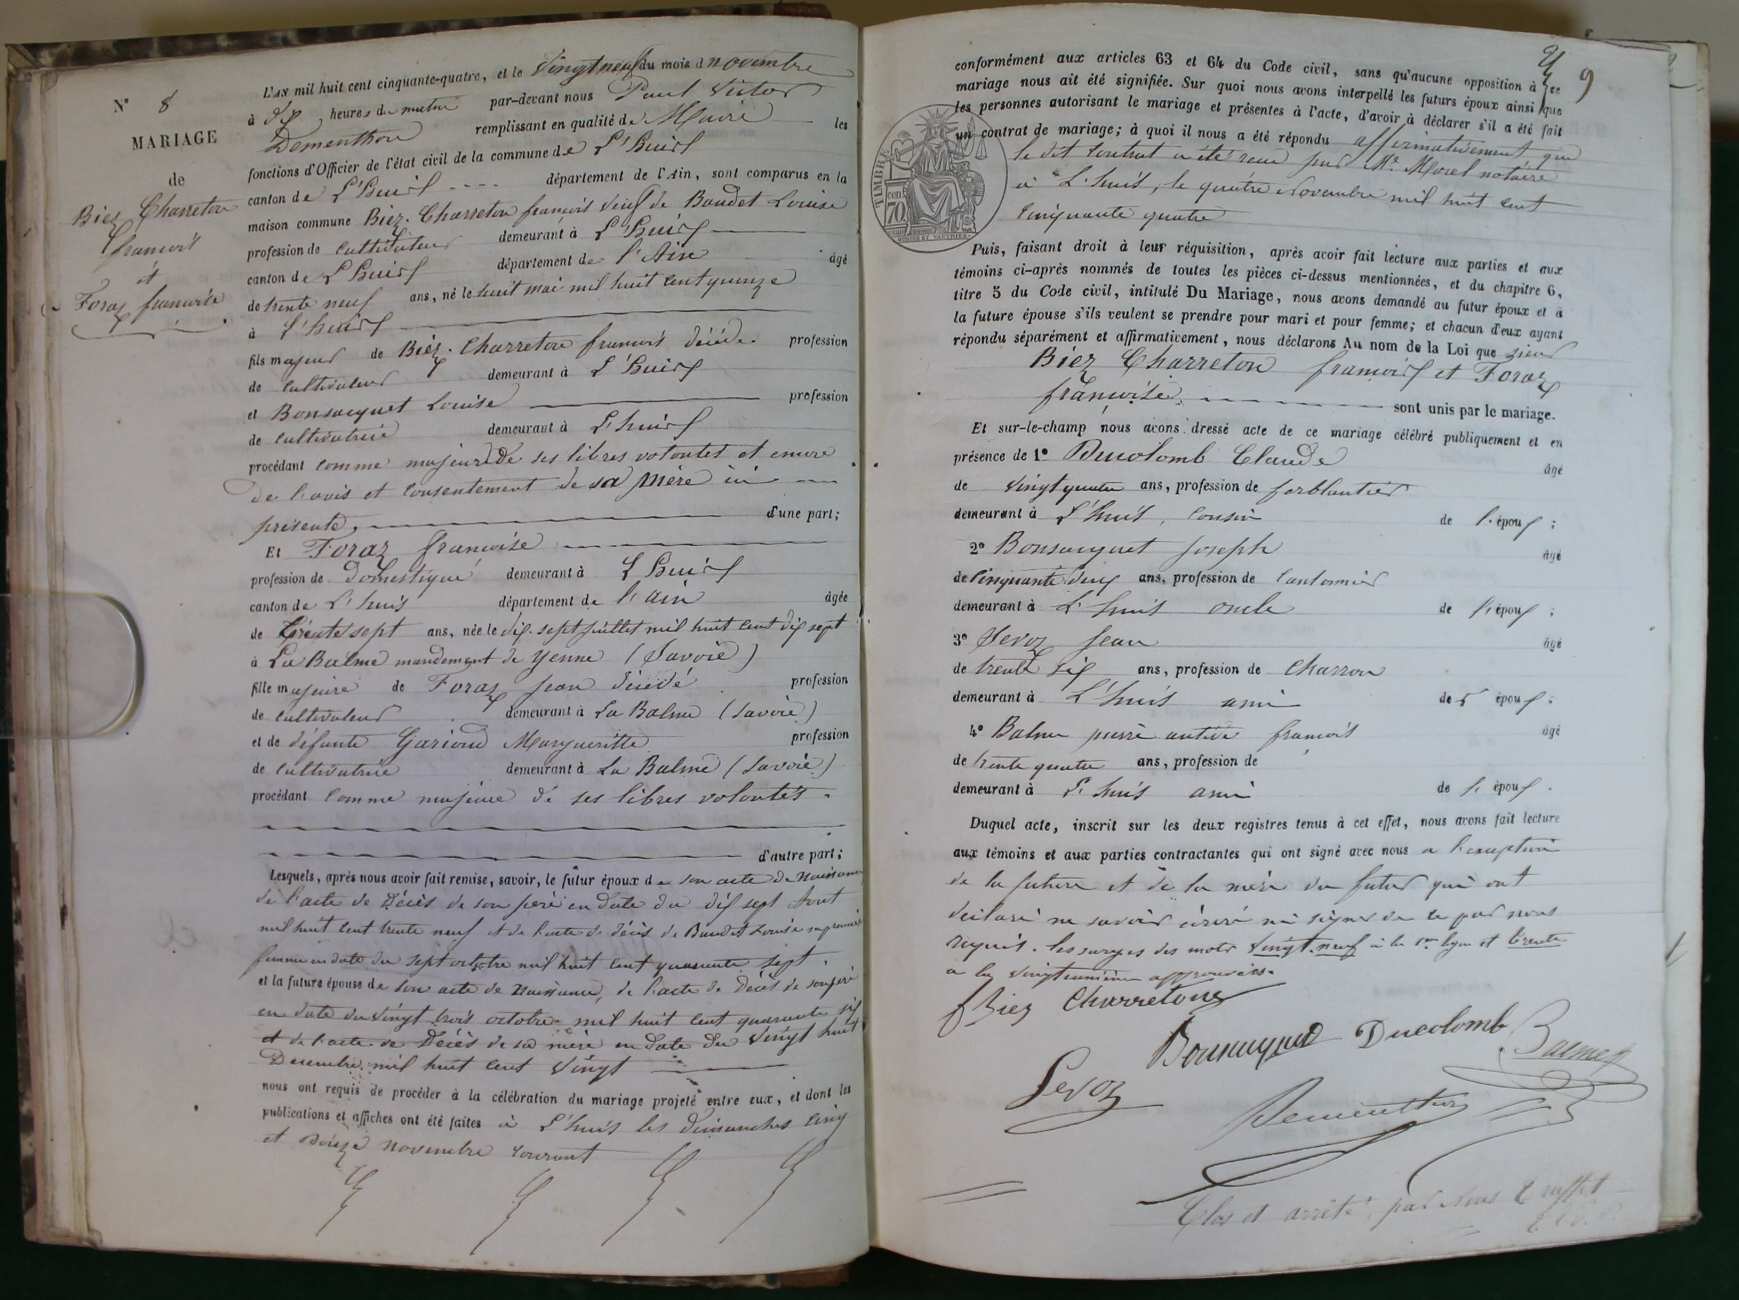 N° 8
MARIAGE
de
Biez Charreton
françois
et
Foraz françoise
L'an mil huit cent cinquante-quatre, et le Vingt neuf du mois d novembre
à dix heures du matin par-devant nous Paul Victor
Dementhon remplissant en qualité de Maire les
fonctions d'Officier de l'état civil de la commune de L'huis
canton de L'huis département de l'Ain, sont comparus en la
maison commune Biez. Charreton françois Veuf de Baudet Louise
profession de cultivateur demeurant à L'huis
canton de L'huis département de l'Ain âgé
de trente neuf ans, né le huit mai mil huit cent quinze
à L'huis
fils majeur de Biez. Charreton francois décédé profession
de cultivateur demeurant à L'huis
et Bonsacquet Louise profession
de cultivatrice demeurant à L'huis
procédant comme majeur de ses libres volontés et encore
de l'avis et consentement de sa mère ici
présente, d'une part;
Et Foraz françoise
profession de domestique demeurant à L'huis
canton de L'huis département de l'ain âgée
de trente sept ans, née le dix sept juillet mil huit cent dix sept
à La Balme mandement de Yenne (Savoie)
fille majeure de Foraz Jean décédé profession
de cultivateur demeurant à La Balme (Savoie)
et de défunte Gariond Margueritte profession
de cultivatrice demeurant à La Balme (Savoie)
procédant comme majeure de ses libres volontés.
d'autre part;
Lesquels, après nous avoir fait remise, savoir, le futur époux de son acte de naissance
de l'acte de Décès de son père en date du dix sept Aout
mil huit cent trente neuf et de l'acte de décès de Baudet Louise sa première
femme en date du sept octobre mil huit cent quarante sept.
et la future épouse de son acte de naissance, de l'acte de Décès de son père
en date du vingt trois octobre mil huit cent quarante six
et de l'acte de Décès de sa mère en date du vingt huit
Decembre mil huit cent vingt
nous ont requis de procéder à la célébration du mariage projeté entre eux, et dont les
publications et affiches ont été faites à L'huis les dimanches cinq
et douze novembre courant
9
conformément aux articles 63 et 64 du Code civil, sans qu'aucune opposition à ce
mariage nous ait été signifiée. Sur quoi nous avons interpellé les futurs époux ainsi que
les personnes autorisant le mariage et présentes à l'acte, d'avoir à déclarer s'il a été fait
un contrat de mariage; à quoi il nous a été répondu affirmativement que
le dit contrat a été recu par Me Morel notaire
à L'huis, le quatre Novembre mil huit cent
cinquante quatre
TIMBRE
70
Puis, faisant droit à leur réquisition, après avoir fait lecture aux parties et aux
témoins ci-après nommés de toutes les pièces ci-dessus mentionnées, et du chapitre 6,
titre 5 du Code civil, intitulé Du Mariage, nous avons demandé au futur époux et à
la future épouse s'ils veulent se prendre pour mari et pour femme; et chacun d'eux ayant
répondu séparément et affirmativement, nous déclarons Au nom de la Loi que sieur
Biez Charreton françois et Foraz
françoise sont unis par le mariage.
Et sur-le-champ nous avons dressé acte de ce mariage célébré publiquement et en
présence de 1° Ducolomb Claude âgé
de vingt quatre ans, profession de ferblantier
demeurant à L'huis, cousin de l' époux;
2° Bonsacquet Joseph âgé
de cinquante deux ans, profession de cantonnier
demeurant à L'huis oncle de l' époux;
3° Sevoz Jean âgé
de trente six ans, profession de charron
demeurant à L'huis ami de l' époux;
4° Balme pierre françois âgé
de trente quatre ans, profession de
demeurant à L'huis ami de l' époux.
Duquel acte, inscrit sur les deux registres tenus à cet effet, nous avons fait lecture
aux témoins et aux parties contractantes qui ont signé avec nous a l'exception
de la future et de la mère du futur qui ont
déclaré ne savoir écrire ni signer de ce par nous
requis. Les surcharges des mots vingt neuf à la 1ere ligne et trente
a la approuvées.
f Biez Charreton
Bonsacquet Ducolomb Balme
Sevoz
Dementhon
Clos et arrêté par Nous